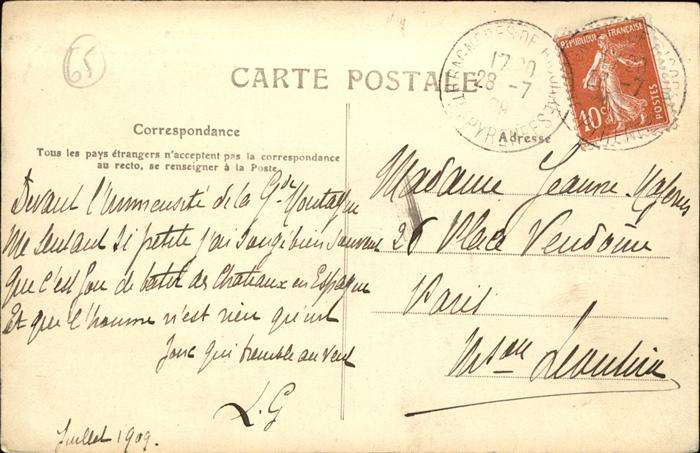 65
CARTE POSTALE
Correspondance
Tous les pays étrangers n'acceptent pas la correspondance
au recto, se renseigner à la Poste.
Devant l'Immensité de la Gde Montagne
Me sentant si petite j'ai songé bien souvent
Que c'est fou de batir des Chateaux en Espagne
Et que l'homme n'est rien qu'un
Jonc qui tremble au vent
L.G
Juillet 1909.
BAGNERES-DE-BIGORRE
17
28 -7
PYRENEES
REPUBLIQUE FRANÇAISE
POSTES
10c
Adresse
Madame Jeanne
26 Place Vendôme
Paris
Mson